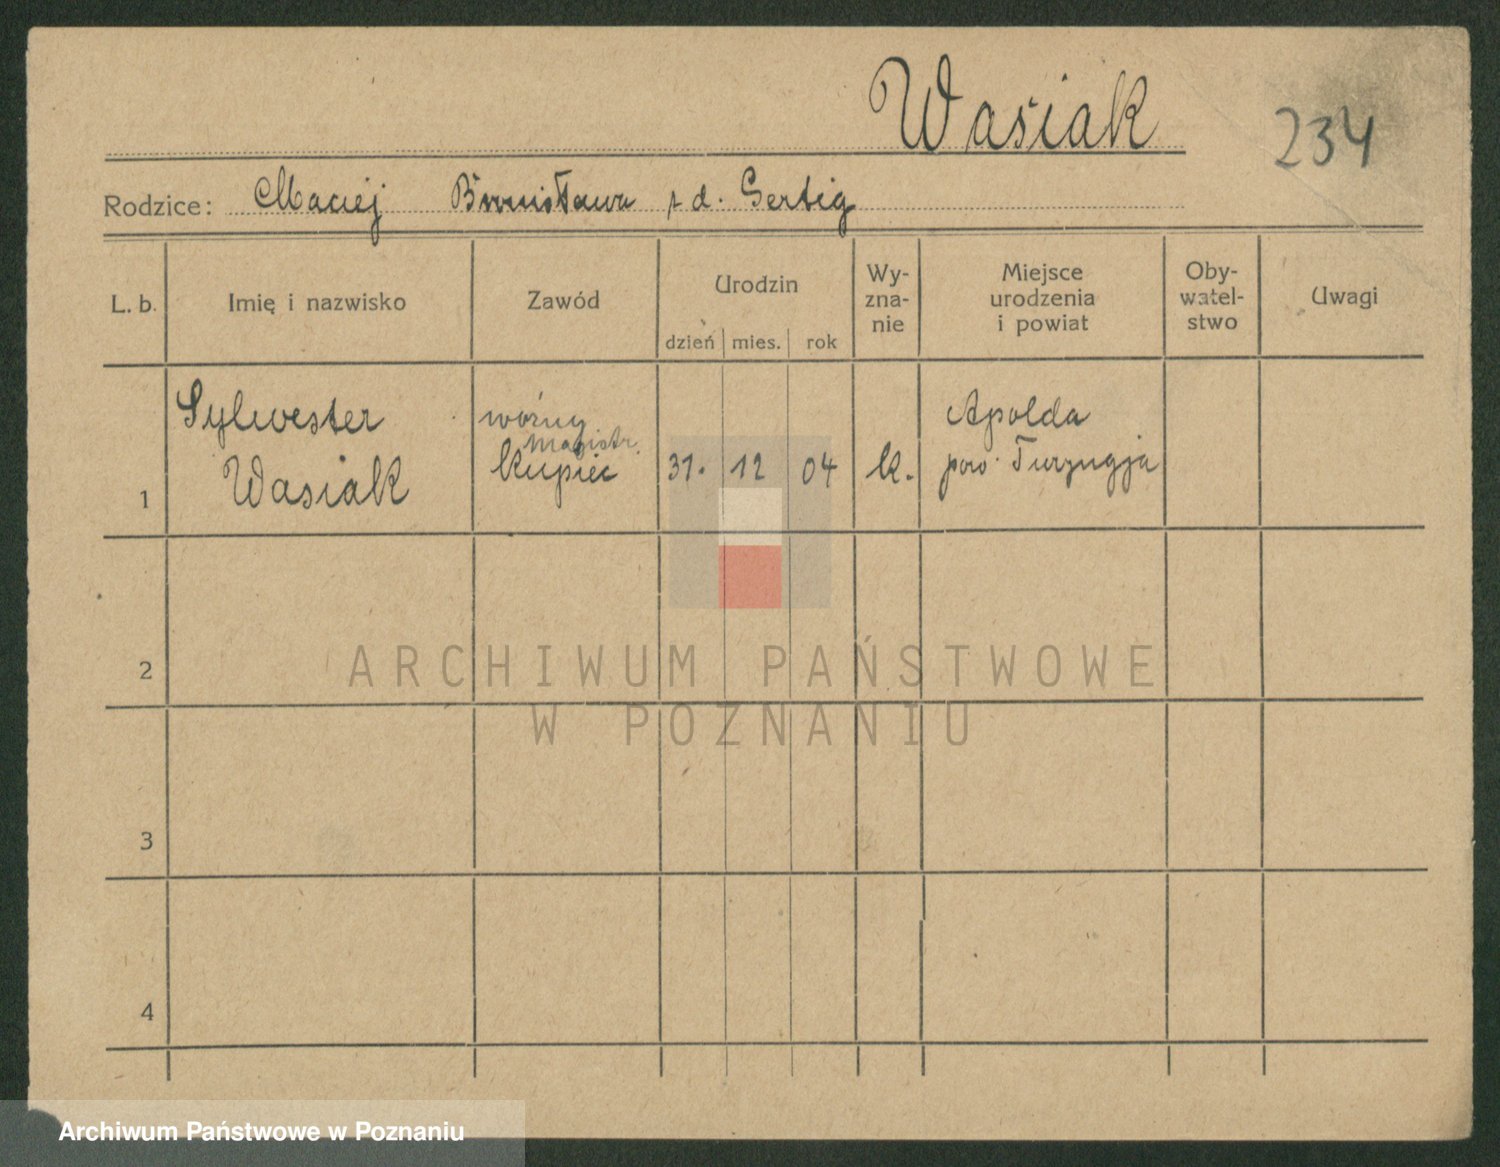 Wasiak
234
Rodzice: Maciej Bronisława z d. Gertig
L. b.
Imię i nazwisko
Zawód
Urodzin
dzień mies. rok
Wy-
zna-
nie
Miejsce
urodzenia
i powiat
Oby-
watel-
stwo
Uwagi
1
Sylwester
Wasiak
woźny
magistr.
kupiec
31. 12 04
k.
Apolda
pow. Turyngja
2
3
4
ARCHIWUM PAŃSTWOWE
W POZNANIU
Archiwum Państwowe w Poznaniu